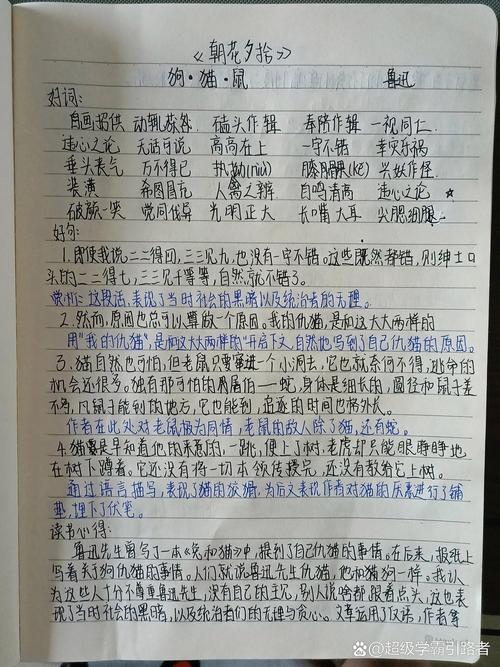 《朝花夕拾》
狗·猫·鼠 鲁迅
好词:
自画招供 动辄 磕头作辑 奉陪作辑 一视同仁
违心之论 无话可说 高高在上 一字不错 幸灾乐祸
垂头丧气 万不得已 执拗(niù) 膝髁(kē) 兴妖作怪
装潢 希图冒充 人禽之辨 自鸣清高 违心之论 ☆
破颜一笑 党同伐异 光明正大 长嘴大耳 尖腮细腿
好句:
1.即使我说二二得四,三三见九,也没有一字不错。这些既然都错,则绅士口
头的二二得七,三三见千等等,自然就不错了。
这段话,表现了当时社会的黑暗以及统治者的无理。
2.然而,原因也总可以算做一个原因。我的仇猫,是和这大大两样的
用"我的仇猫",是和这大大两样的"开启下文,自然地写到了自己仇猫的原因。
3.猫自然也可怕,但老鼠只要窜进一个小洞去,它也就奈何不得,逃命的
机会还很多。独有那可怕的屠伯——蛇,身体是细长的,圆径和鼠子差
不多,凡鼠子能到的地方,它也能到,追逐的时间也格外长。
作者在此处对老鼠极为同情,老鼠的敌人除了猫,还有蛇。
4.猫是早知道他的来意的,一跳,便上了树,老虎却只能眼睁睁地
在树下蹲着。它还没有将一切本领传授完,还没有教给它上树。
通过语言描写,表现了猫的狡猾,为后文表现作者对猫的厌恶进行了铺
垫,埋下了伏笔。
读书心得:
鲁迅先生曾写了一本《兔和猫》中,提到了自己仇猫的事情。在后来,报纸上
写着关于狗仇猫的事情。人们就说鲁迅先生仇猫,他和猫狗一样。我认
为这些人十分不尊重鲁迅先生,没有自己的主见,别人说啥都跟着点头,这也表
现了当时社会的黑暗,以及统治者们的无理与贪心。文章运用了反语,作者等
@超级学霸引路者